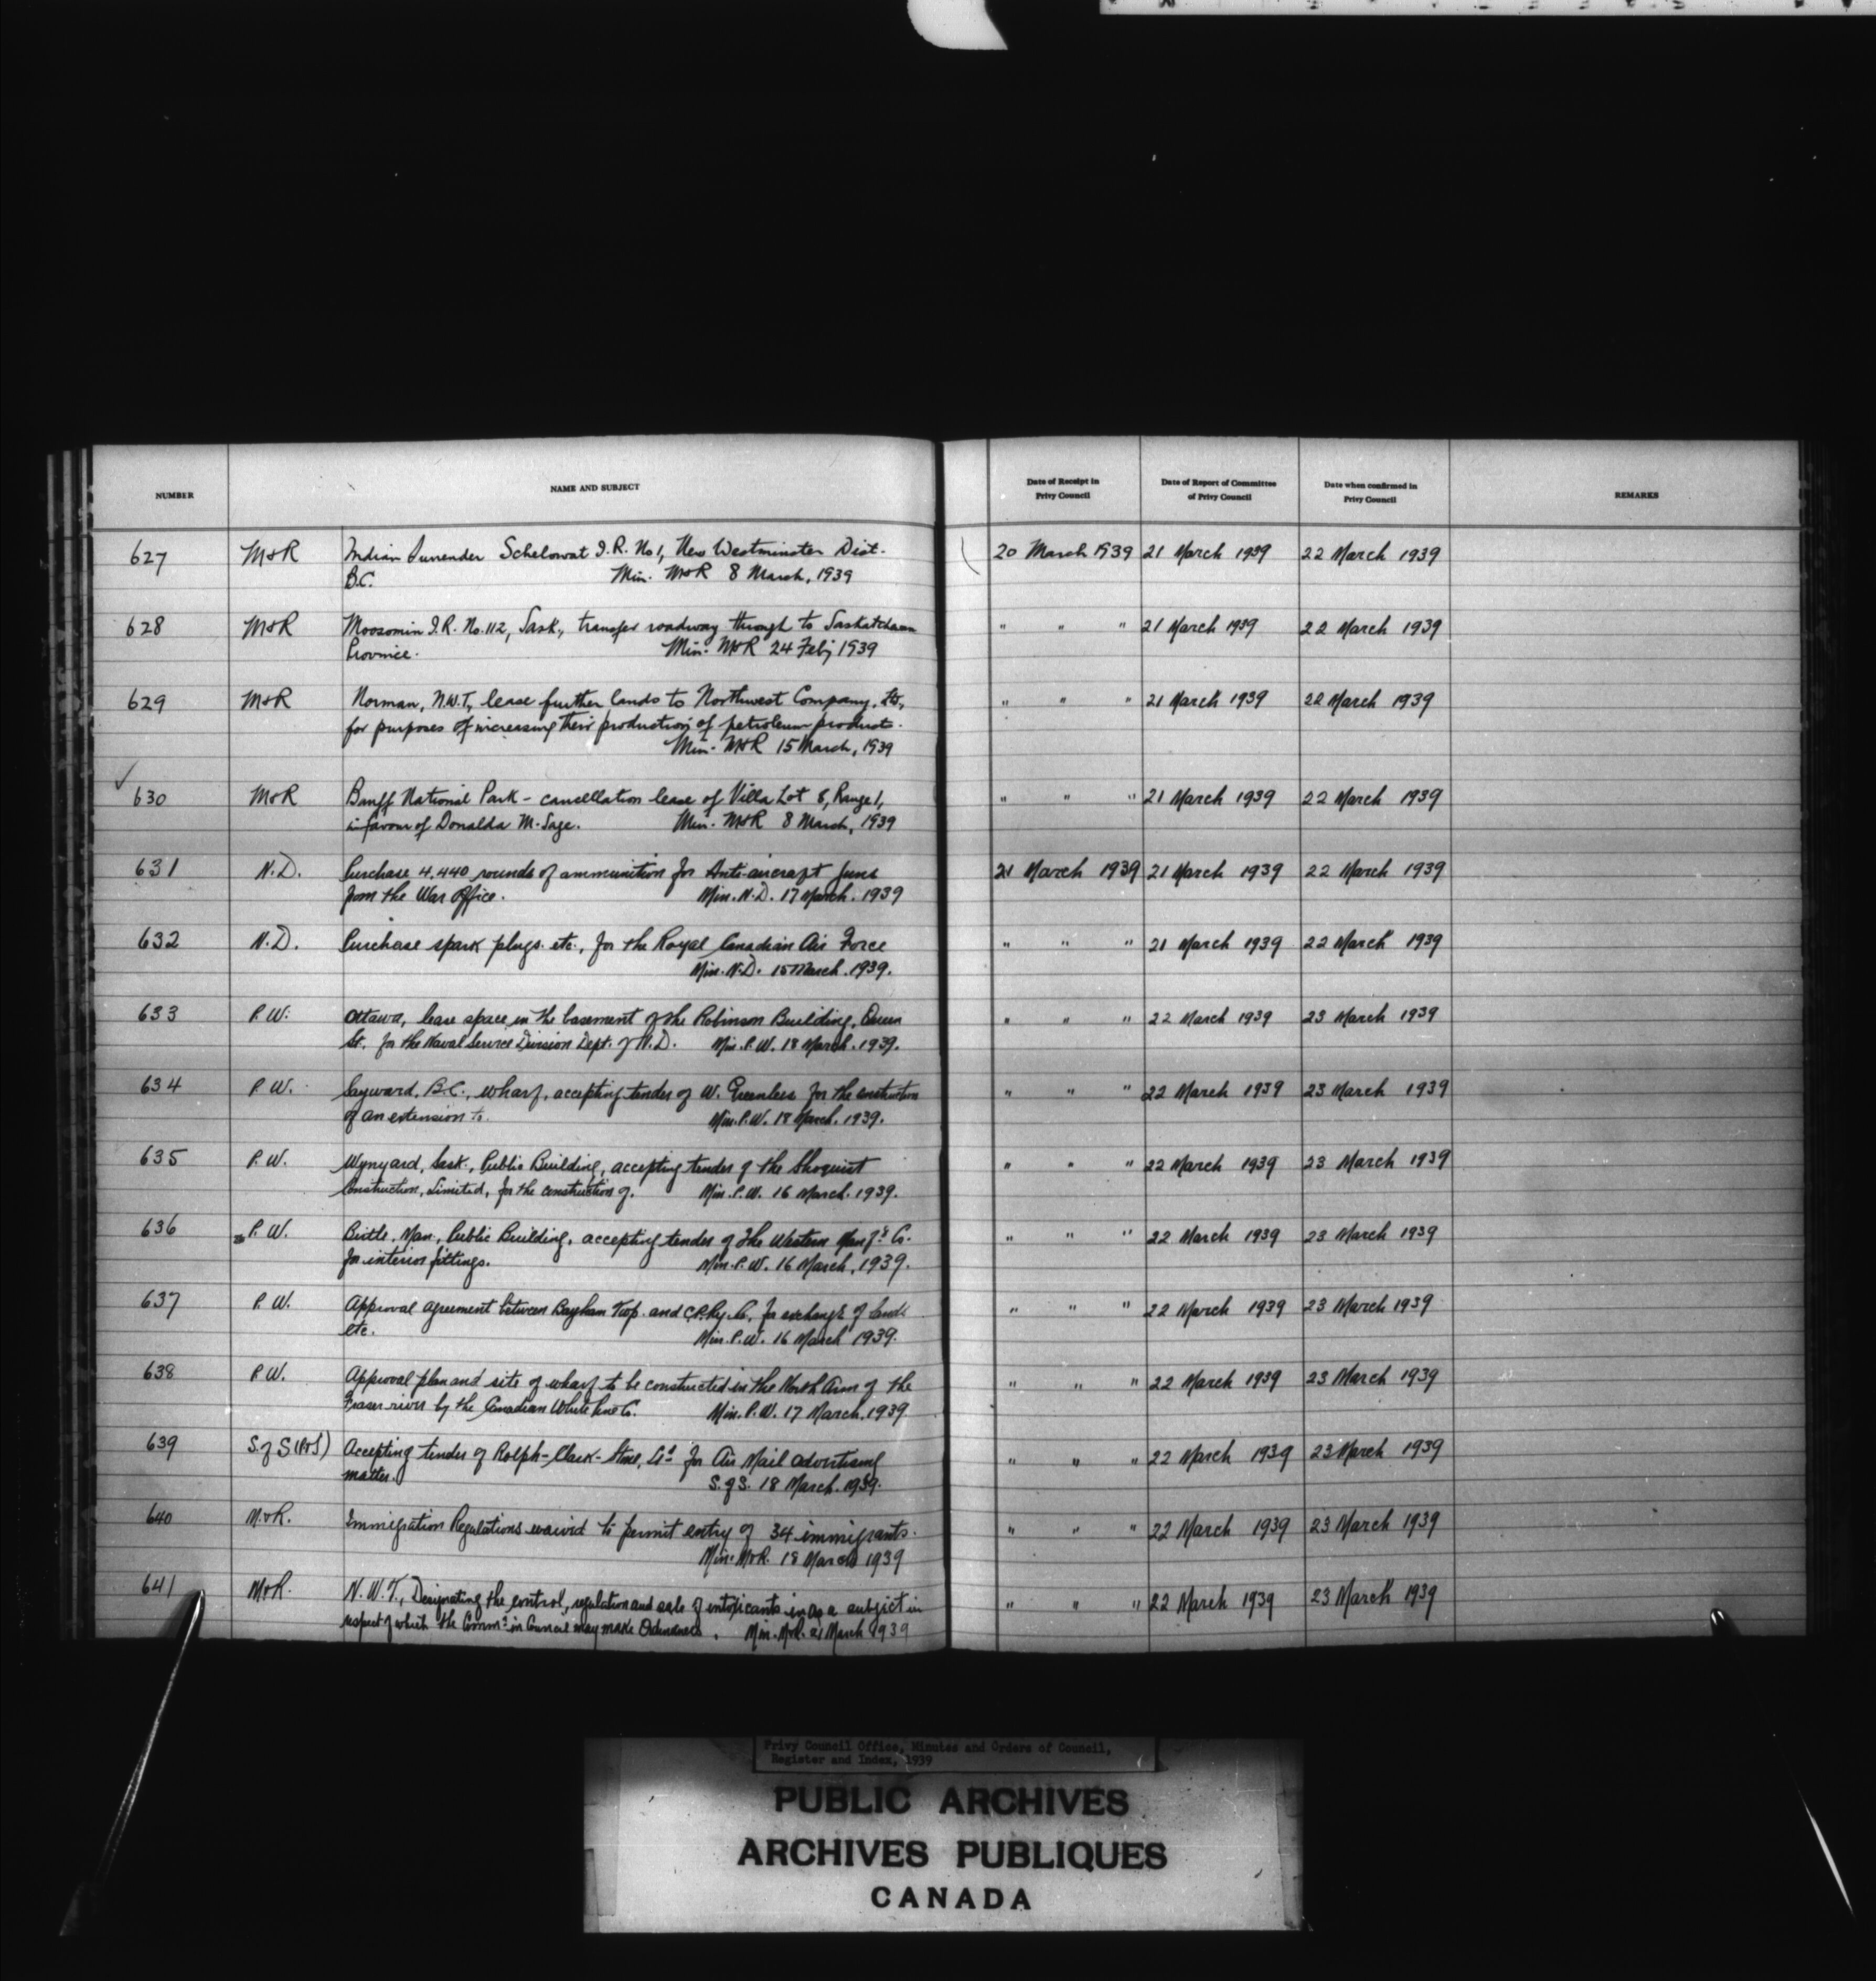 NUMBER NAME AND SUBJECT Date of Receipt in Privy Council Date of Report of Committee of Privy Council Date when confirmed in Privy Council REMARKS
627 M&R Indian Surrender Schelowat I.R. No 1, New Westminster Dist. 20 March 1939 21 March 1939 22 March 1939
B.C. Min. M&R 8 March, 1939
628 M&R Moosomin I.R. No. 112, Sask., transfer roadway through to Saskatchewan " " " 21 March 1939 22 March 1939
Province. Min. M&R 24 Feby 1939
629 M&R Norman, N.W.T., lease further lands to Northwest Company, Ltd., " " " 21 March 1939 22 March 1939
for purposes of increasing their production of petroleum products.
Min. M&R 15 March, 1939
✓ 630 M&R Banff National Park - cancellation lease of Villa Lot 8, Range 1, " " " 21 March 1939 22 March 1939
in favour of Donalda M. Sage. Min. M&R 8 March, 1939
631 N.D. Purchase 4,440 rounds of ammunition for Anti-aircraft guns 21 March 1939 21 March 1939 22 March 1939
from the War Office. Min. N.D. 17 March. 1939
632 N.D. Purchase spark plugs. etc., for the Royal Canadian Air Force " " " 21 March 1939 22 March 1939
Min. N.D. 15 March. 1939.
633 P.W. Ottawa, lease space in the basement of the Robinson Building, Queen " " " 22 March 1939 23 March 1939
St. for the Naval Service Division Dept. of N.D. Min. P.W. 18 March. 1939.
634 P.W. Sayward, B.C., wharf, accepting tender of W. Greenlees for the construction " " " 22 March 1939 23 March 1939
of an extension to. Min. P.W. 18 March. 1939.
635 P.W. Wynyard, Sask., Public Building, accepting tender of the Shoquist " " " 22 March 1939 23 March 1939
Construction, Limited, for the construction of. Min. P.W. 16 March. 1939.
636 P.W. Birtle, Man., Public Building, accepting tender of The Western Manfg. Co. " " " 22 March 1939 23 March 1939
for interior fittings. Min. P.W. 16 March, 1939.
637 P.W. Approval agreement between Bayham Twp. and C.P. Ry. Co. for exchange of lands " " " 22 March 1939 23 March 1939
etc. Min. P.W. 16 March 1939.
638 P.W. Approval plan and site of wharf to be constructed in the North Arm of the " " " 22 March 1939 23 March 1939
Fraser river by the Canadian White Pine Co. Min. P.W. 17 March. 1939
639 S. of S (P&S) Accepting tender of Rolph-Clark-Stone, Ltd for Air Mail advertising " " " 22 March 1939 23 March 1939
matter. S. of S. 18 March. 1939.
640 M.&R. Immigration Regulations waived to permit entry of 34 immigrants. " " " 22 March 1939 23 March 1939
Min. M&R. 18 March 1939
641 M&R. N.W.T., Designating the control, regulation and sale of intoxicants in as a subject in " " " 22 March 1939 23 March 1939
respect of which the Commr in Council may make Ordinances. Min. M&R. 21 March 1939
Privy Council Office, Minutes and Orders of Council,
Register and Index, 1939
PUBLIC ARCHIVES
ARCHIVES PUBLIQUES
CANADA